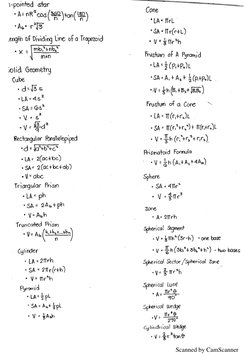 n-pointed star
• A = nR² cos(180/n) tan(
• A
Length of Dividing Line of a Trapezoid
• x = √(mb₁² + nb₂² / m+n)
Solid Geometry
Cube
• d = √3 s
• LA = 4s²
• SA = 6s²
• V = s³
Rectangular Parallelepiped
• d = √a²+b²+c²
• LA = 2(ac+bc)
• SA = 2(ab+bc+ac)
• V = abc
Triangular Prism
• LA = ph
• SA = 2Ab + ph
• V = Abh
Truncated Prism
• V = A
Cylinder
• LA = 2πrh
• SA = 2πr(r+h)
• V = πr²h
Pyramid
• LA = ½pL
• SA = Ab + ½pL
• V = ⅓Abh
Cone
• LA = πrL
• SA = πr(r+L)
• V = ⅓πr²h
Frustum of A Pyramid
• LA = ½(p₁+p₂)L
• SA = A₁ + A₂ + ½(p₁+p₂)L
• V = ⅓h(B₁ + B₂ + √B₁B₂)
Frustum of a Cone
• LA = π(r₁+r₂)L
• SA = π(r₁²+r₂²) + π(r₁+r₂)L
• V = π/3 h(r₁²+r₂²+r₁r₂)
Prismatoid Formula
• V = ⅙h(A₁ + A₂ + 4Am)
Sphere
• SA = 4πr²
• V = 4/3 πr³
Zone
• A = 2πrh
Spherical Segment
• V = ⅓πh²(3r-h) - one base
• V = π/6 h(3a²+3b²+h²) - two bases
Spherical Sector/Spherical Cone
• V = ⅔πr²h
Spherical Lune
• A = πr²θ/90
Spherical Wedge
• V = πr³θ/270
Cylindrical Wedge
• V = ⅔r³tanθ
Scanned by CamScanner